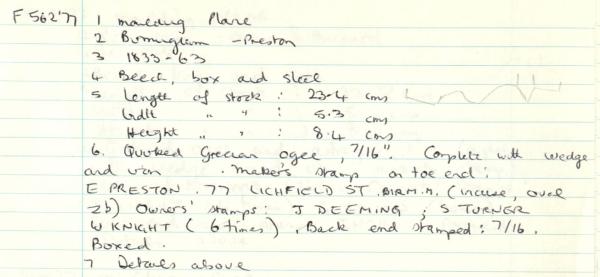 F562'77 1 moulding Plane
2 Birmingham - Preston
3 1833-'63
4 Beech, box and steel
5 Length of stock : 23.4 cms
Width " " : 5.3 cms
Height " " : 8.4 cms
6. Quirked Grecian ogee, 7/16". Complete with wedge
and iron. Maker's stamp on toe end:
E PRESTON . 77 LICHFIELD ST .BIRM.M. (incuse, oval
2b) Owners' stamps: J DEEMING ; S TURNER
W KNIGHT (6 times). Back end stamped: 7/16.
Boxed.
7 Details above